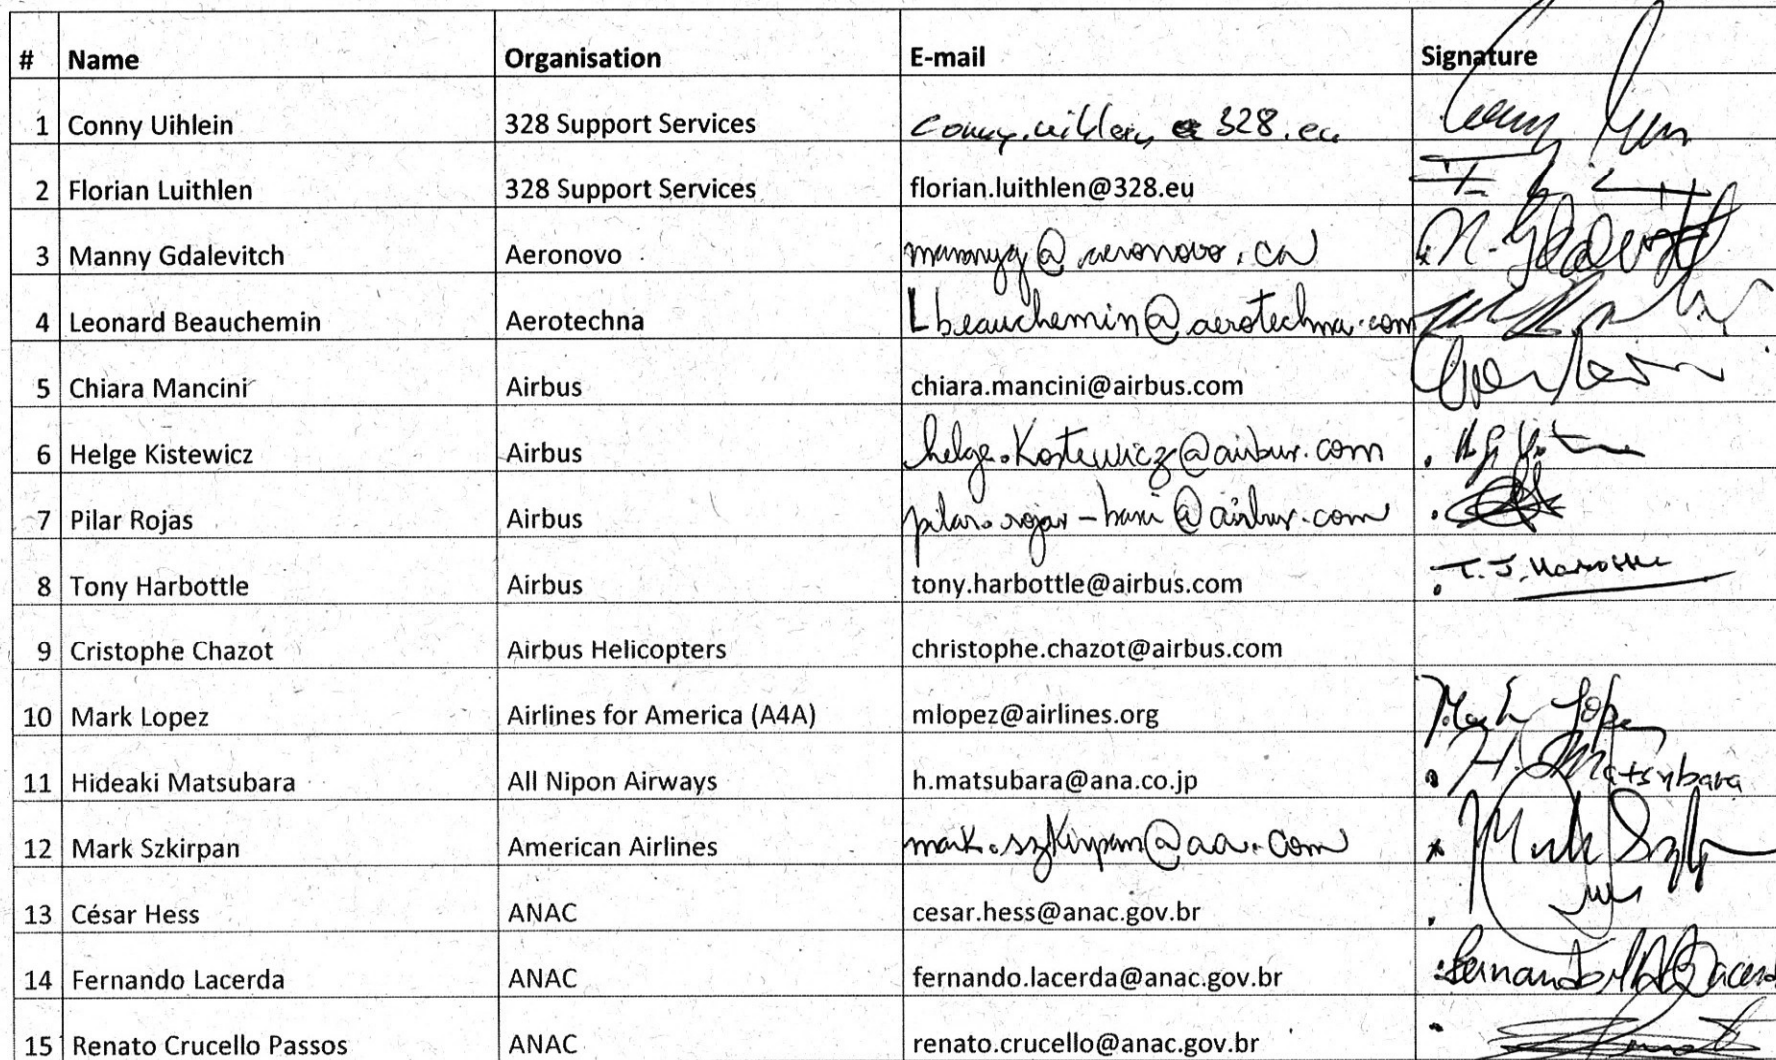 # Name Organisation E-mail Signature
1 Conny Uihlein 328 Support Services conny.uihlein@328.eu
2 Florian Luithlen 328 Support Services florian.luithlen@328.eu
3 Manny Gdalevitch Aeronovo mannyg@aeronovo.ca M. Gdalevitch
4 Leonard Beauchemin Aerotechna Lbeauchemin@aerotechna.com
5 Chiara Mancini Airbus chiara.mancini@airbus.com
6 Helge Kistewicz Airbus helge.Kostewicz@airbus.com
7 Pilar Rojas Airbus
8 Tony Harbottle Airbus tony.harbottle@airbus.com T.J. Harbottle
9 Cristophe Chazot Airbus Helicopters christophe.chazot@airbus.com
10 Mark Lopez Airlines for America (A4A) mlopez@airlines.org Mark Lopez
11 Hideaki Matsubara All Nipon Airways h.matsubara@ana.co.jp H. Matsubara
12 Mark Szkirpan American Airlines mark.szkirpan@aa.com
13 César Hess ANAC cesar.hess@anac.gov.br
14 Fernando Lacerda ANAC fernando.lacerda@anac.gov.br
15 Renato Crucello Passos ANAC renato.crucello@anac.gov.br